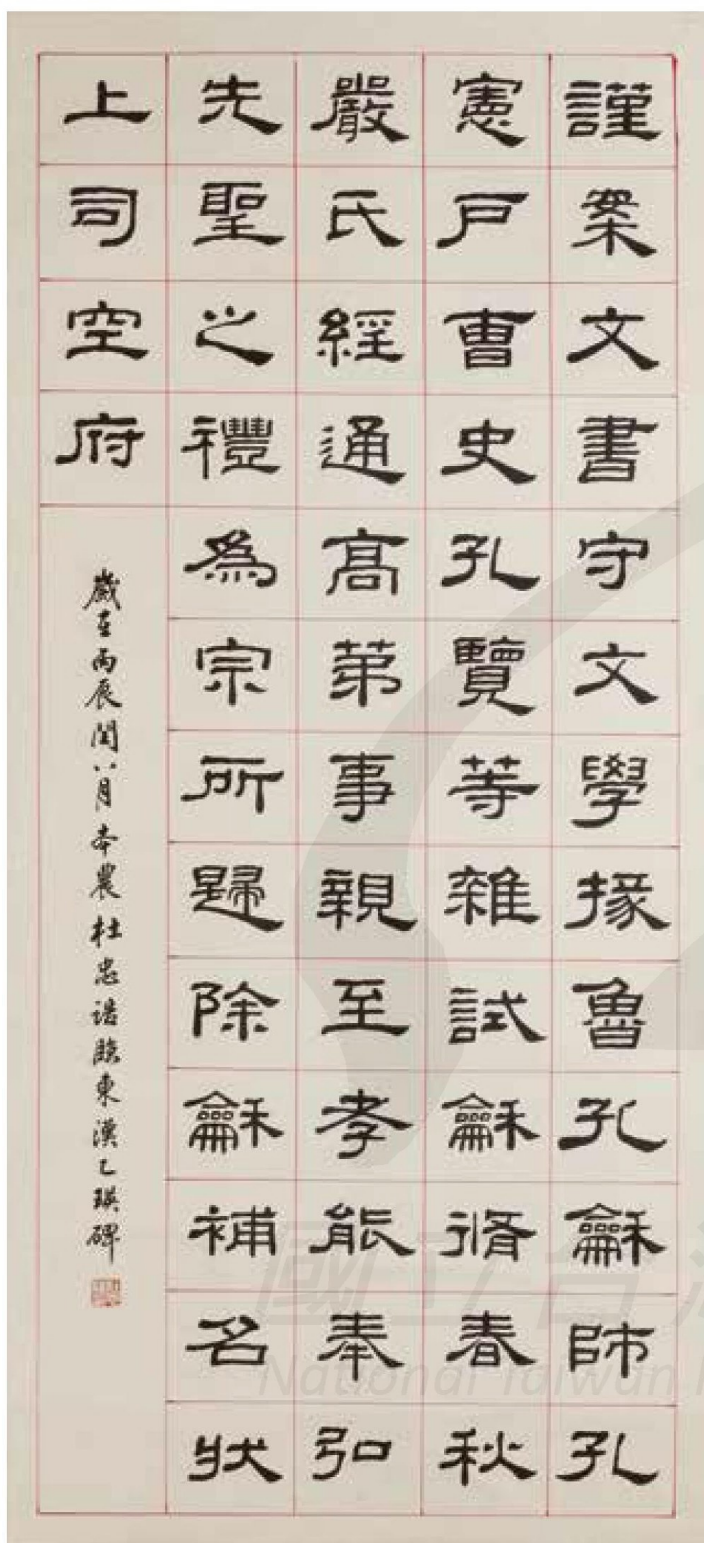 謹案文書守文學掾魯孔龢師孔
憲戶曹史孔覽等雜試龢脩春秋
嚴氏經通高第事親至孝能奉弘
先聖之禮為宗所歸除龢補名狀
上司空府
歲在丙辰閏八月本農杜忠誥臨東漢乙瑛碑
National Taiwan